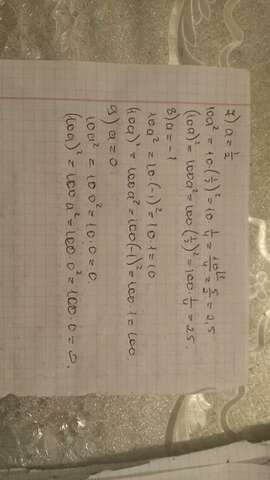 7) a = 1/2
10a² = 10 · (1/2)² = 10 · 1/4 = 10/4 = 5/2 = 2,5
(10a)² = 100a² = 100 · (1/2)² = 100 · 1/4 = 25.
8) a = -1
10a² = 10 · (-1)² = 10 · 1 = 10
(10a)² = 100a² = 100 · (-1)² = 100 · 1 = 100
9) a = 0
10a² = 10 · 0² = 10 · 0 = 0.
(10a)² = 100a² = 100 · 0² = 100 · 0 = 0.